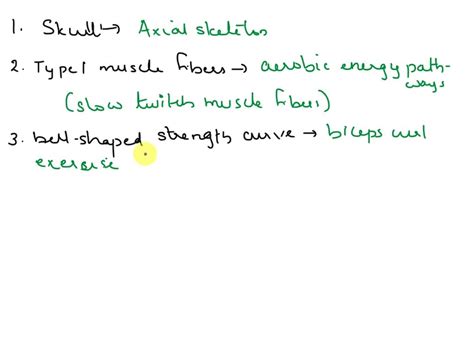 1. Skull → Axial skeleton
2. Type 1 muscle fibers → aerobic energy path-
ways
(slow twitch muscle fiber)
3. bell-shaped strength curve → biceps curl
exercise